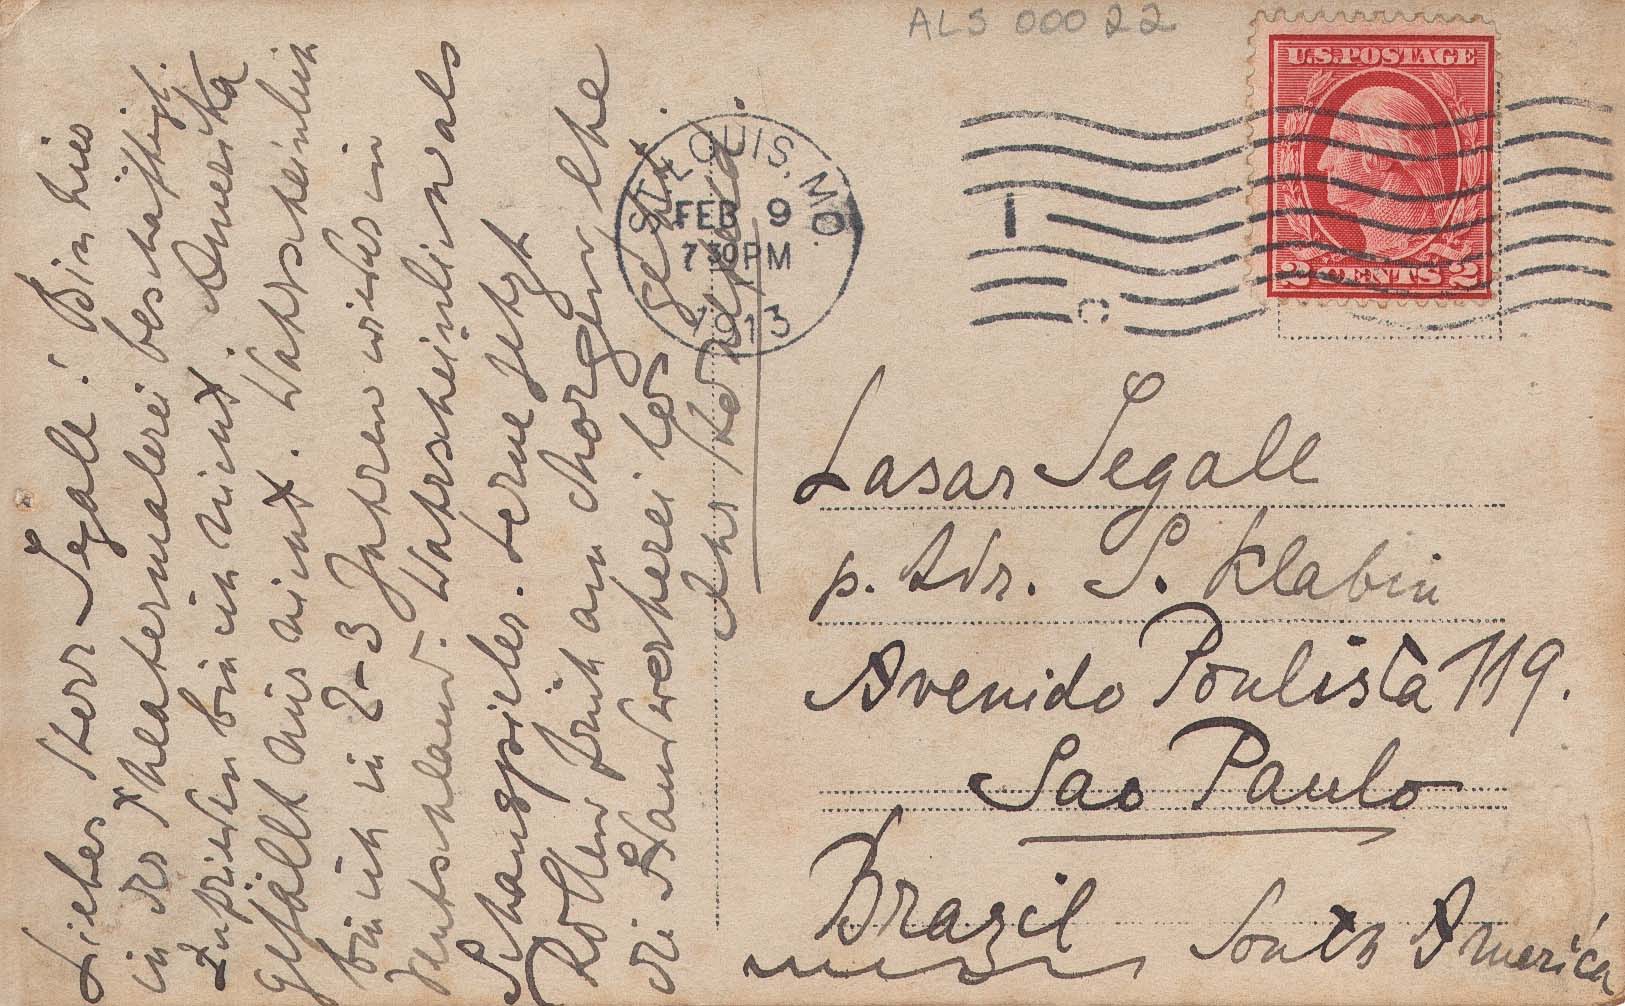 ALS 00022
U.S. POSTAGE
2 CENTS 2
ST. LOUIS, MO.
FEB 9
7 30 PM
1913
Lieber Herr Segall! Bin hier
in der Theatermalerei beschäftigt.
Zufrieden bin ich nicht. Amerika
gefällt mir nicht. Wahrscheinlich
bin ich in 2-3 Jahren wieder in
Deutschland. Wahrscheinlich als
Schauspieler. Lerne jetzt
Rollen früh am Morgen, ehe
die Handwerkerei los geht.
Ihr
Lasar Segall
p. Adr. S. Klabin
Avenido Poulista 119.
Sao Paulo
Brazil
South America